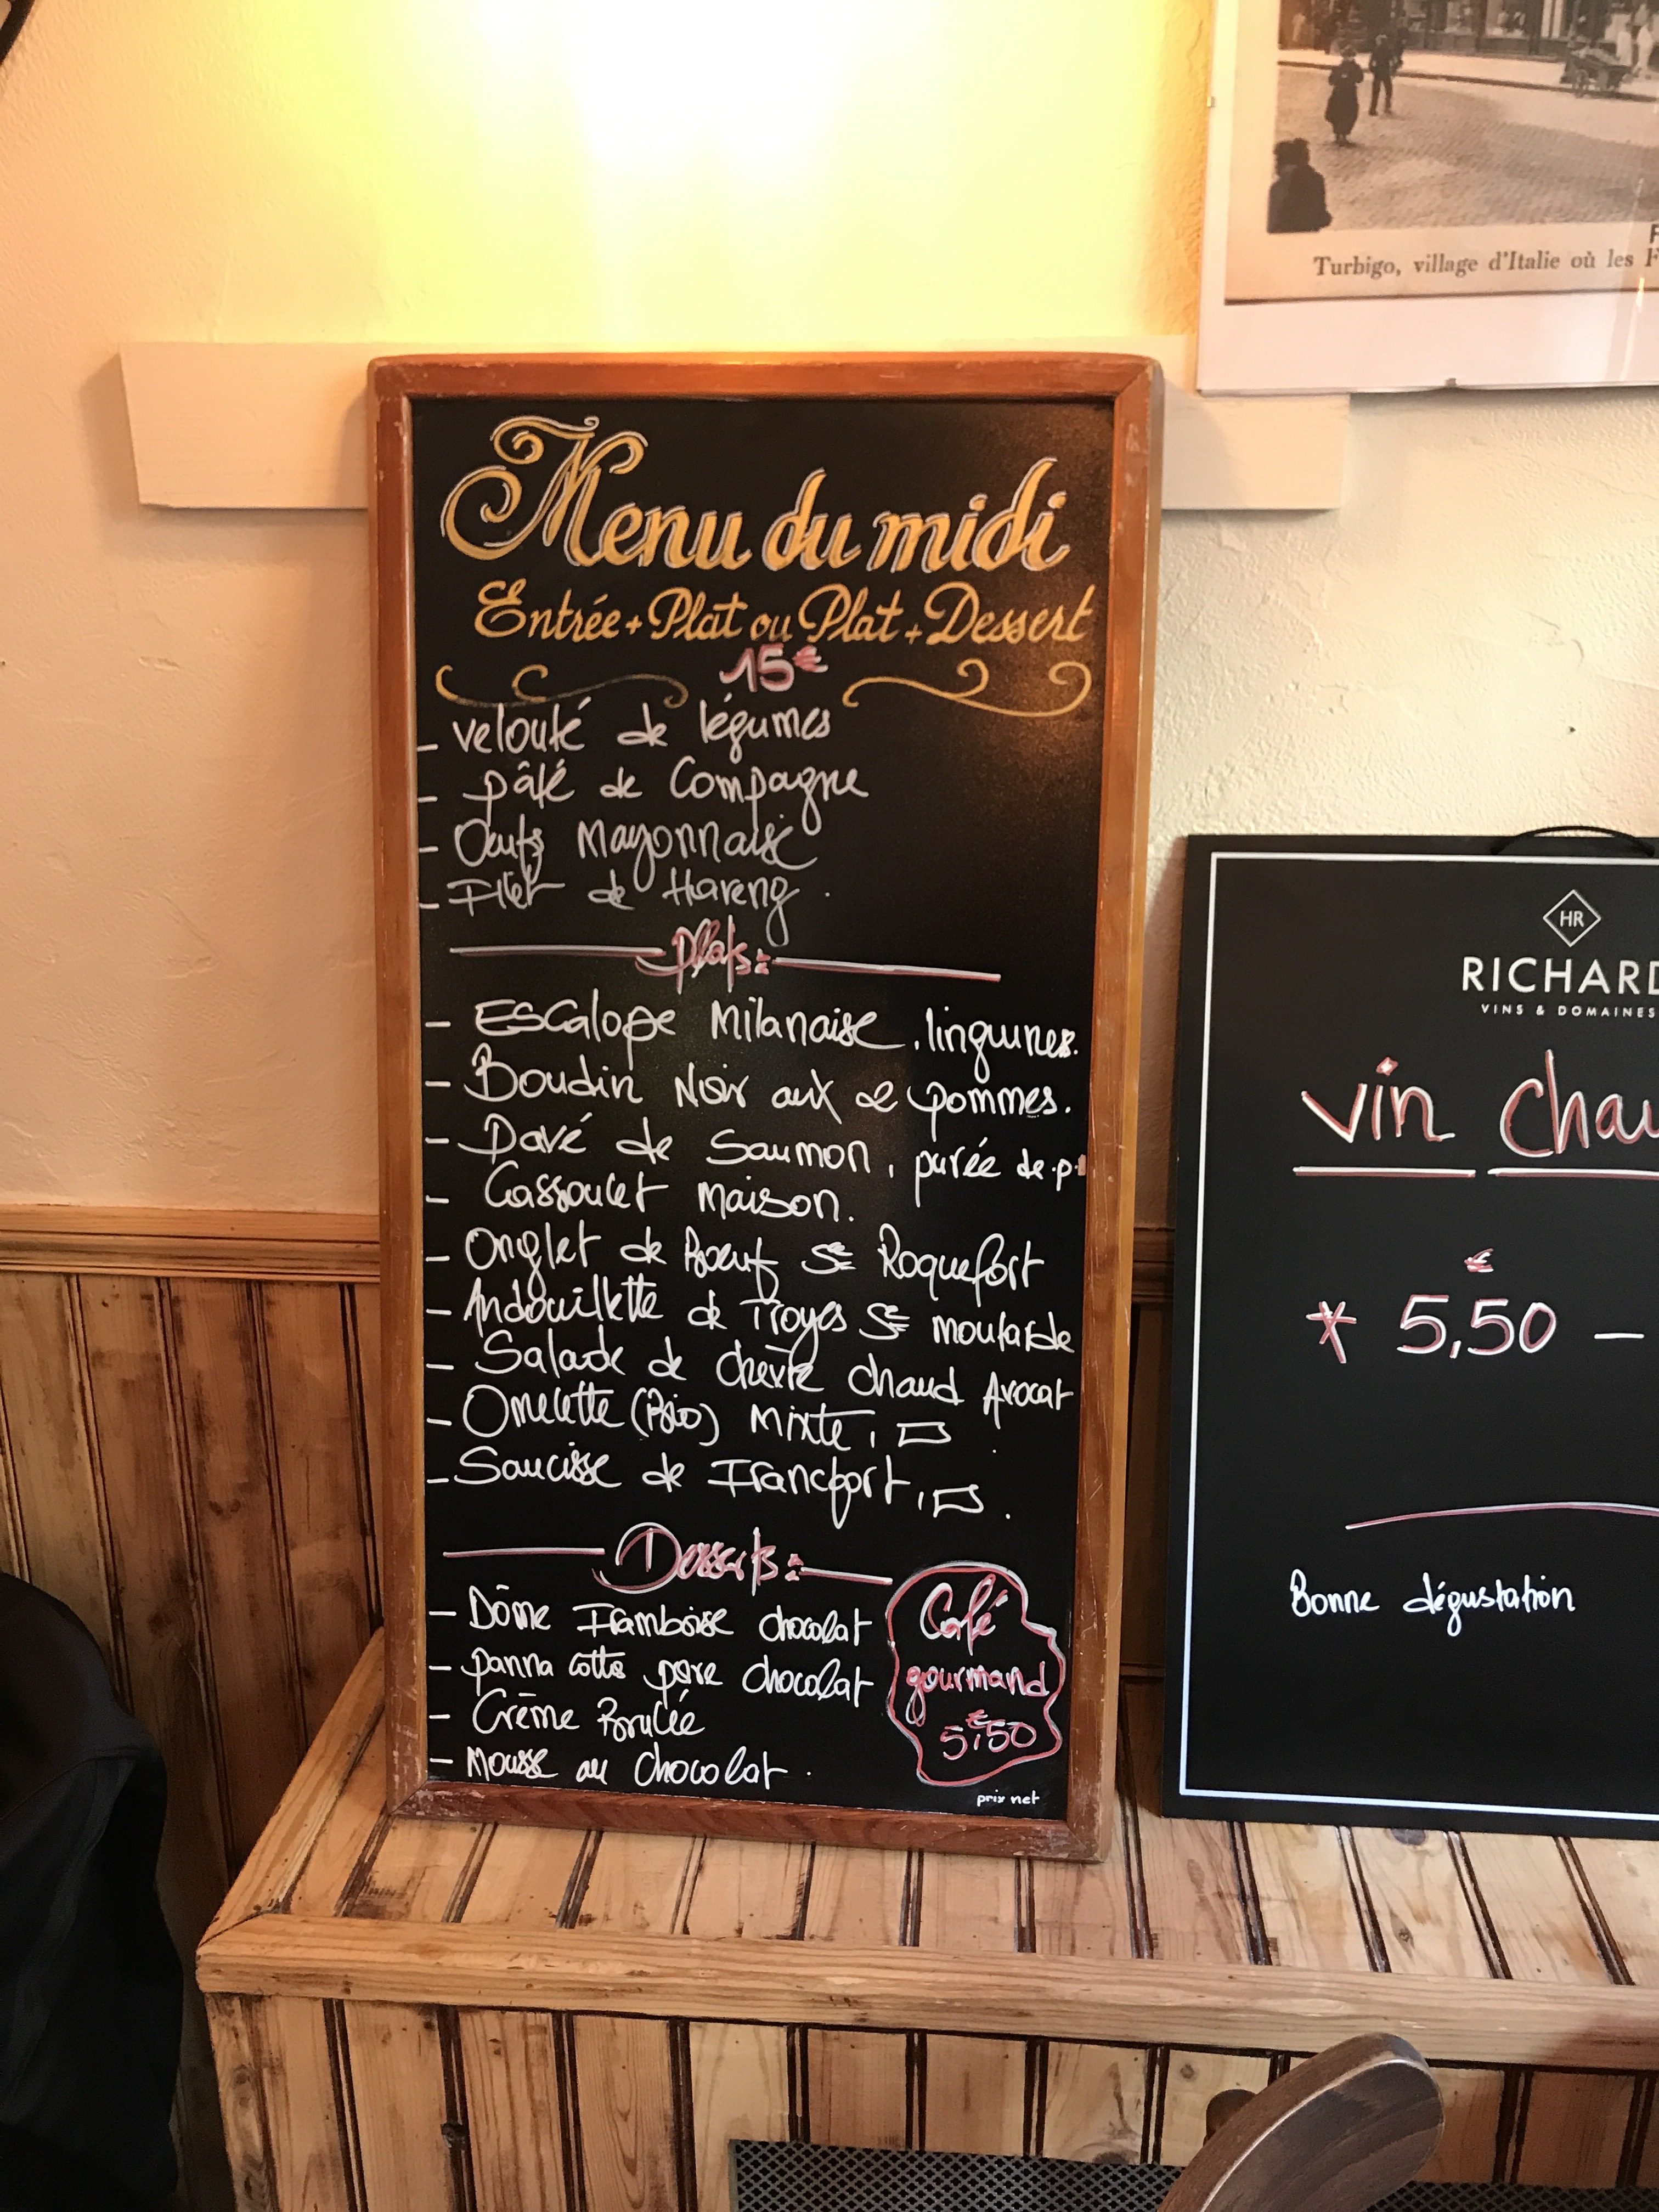 Menu du midi
Entrée + Plat ou Plat + Dessert
15€
- velouté de légumes
- pâté de Campagne
- Oeufs Mayonnaise
- Filet de Hareng.
Plats:
- Escalope Milanaise, linguines.
- Boudin Noir aux 2 pommes.
- Pavé de Saumon, purée de p.
- Cassoulet maison.
- Onglet de Boeuf Sce Roquefort
- Andouillette de Troyes Sce moutarde
- Salade de chèvre chaud Avocat
- Omelette (Bio) Mixte,
- Saucisse de Francfort,
Desserts:
- Dôme Framboise chocolat
- panna cotta poire chocolat
- Crème Brulée
- Mousse au chocolat.
Café
gourmand
5,50 €
prix net
Turbigo, village d'Italie où les F
HR
RICHARD
VINS & DOMAINES
vin chau
€
* 5,50 -
Bonne dégustation